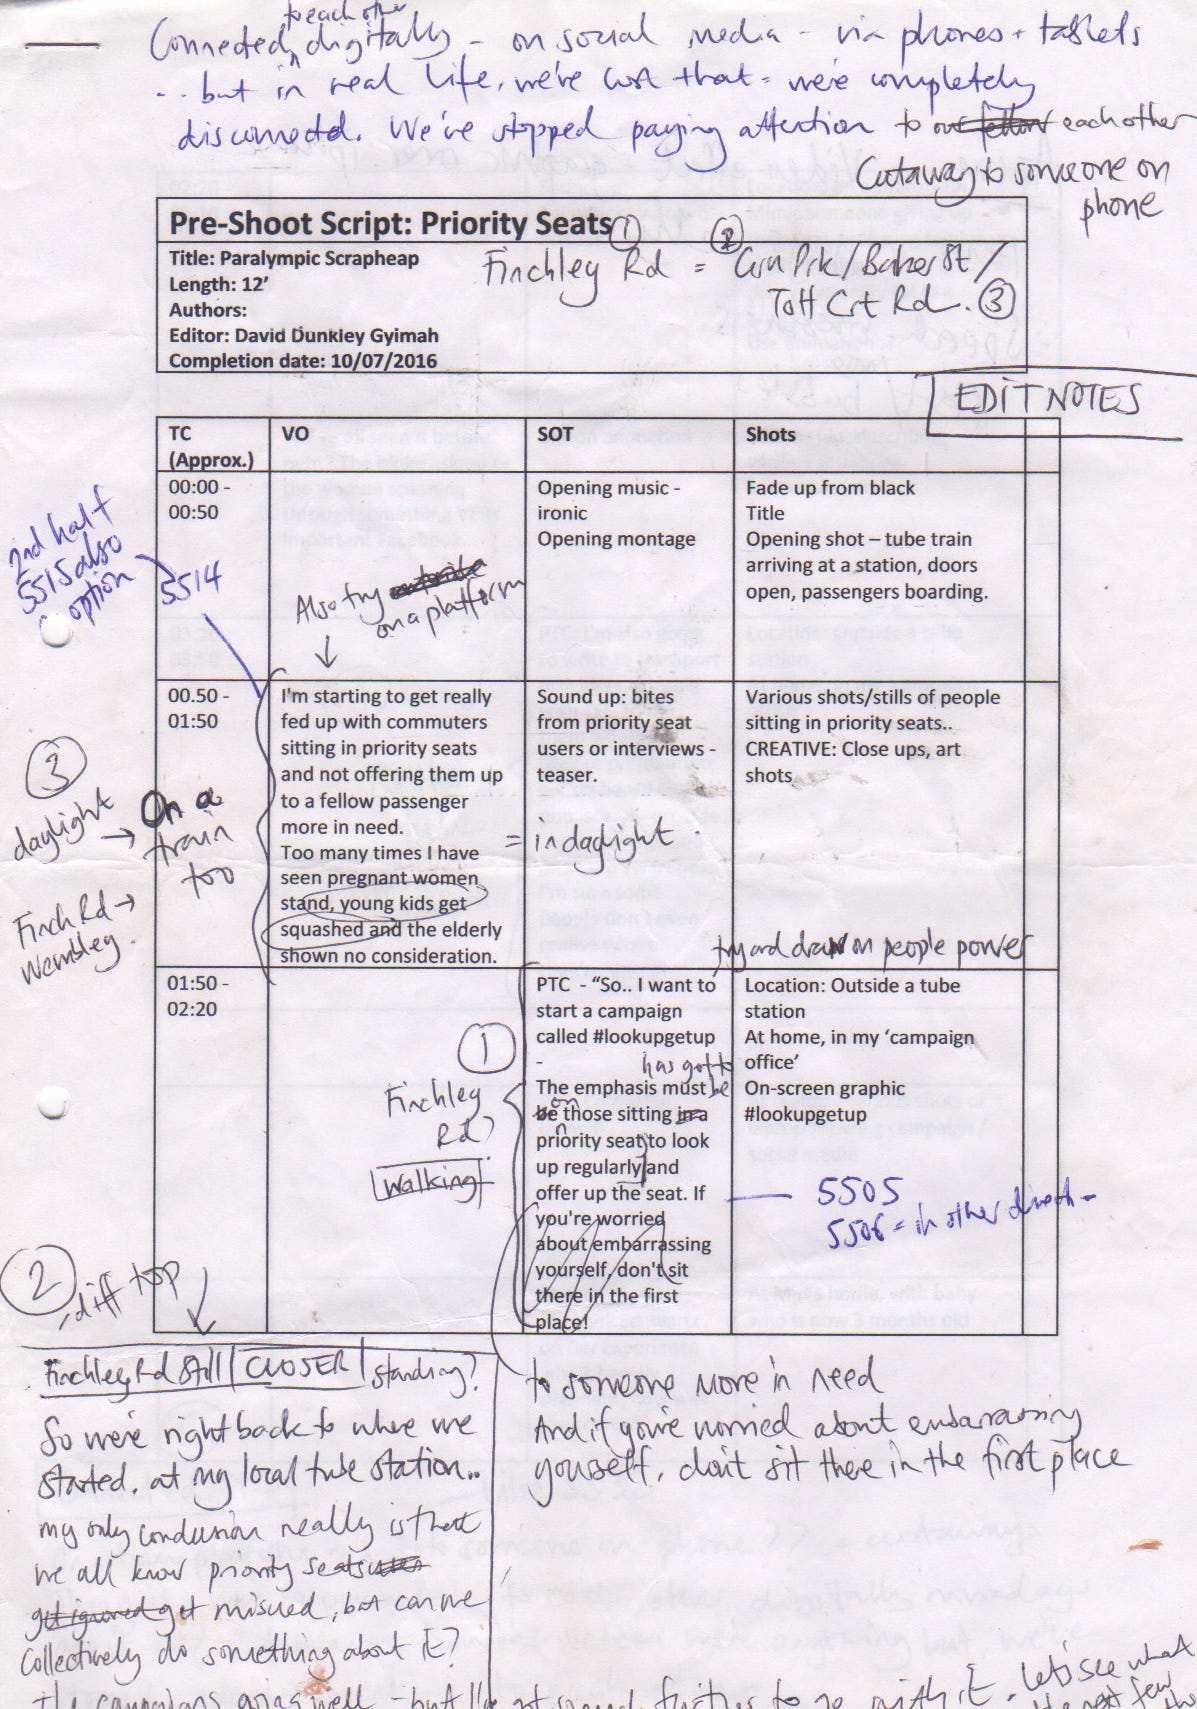 to each other
Connected, digitally - on social media - via phones + tablets
... but in real life, we've lost that - we're completely
disconnected. We've stopped paying attention to our fellow each other
Cutaway to someone on
phone
Pre-Shoot Script: Priority Seats
Title: Paralympic Scrapheap
Length: 12’
Authors:
Editor: David Dunkley Gyimah
Completion date: 10/07/2016
① ②
Finchley Rd = Grn Prk / Baker St /
Tott Crt Rd. ③
EDIT NOTES
TC VO SOT Shots
(Approx.)
00:00 -
00:50
Opening music -
ironic
Opening montage
Fade up from black
Title
Opening shot – tube train
arriving at a station, doors
open, passengers boarding.
2nd half
5515 also
option
5514
Also try outside
on a platform
00.50 -
01:50
I'm starting to get really
fed up with commuters
sitting in priority seats
and not offering them up
to a fellow passenger
more in need.
Too many times I have
seen pregnant women
stand, young kids get
squashed and the elderly
shown no consideration.
Sound up: bites
from priority seat
users or interviews -
teaser.
= in daylight.
Various shots/stills of people
sitting in priority seats..
CREATIVE: Close ups, art
shots
③
daylight →
On a
train
too
Finch Rd →
Wembley.
try and draw on people power
01:50 -
02:20
①
Finchley
Rd?
Walking
PTC - “So.. I want to
start a campaign
called #lookupgetup
-
has got to
The emphasis must be
be on those sitting in a
priority seat to look
up regularly and
offer up the seat. If
you're worried
about embarrassing
yourself, don't sit
there in the first
place!
Location: Outside a tube
station
At home, in my ‘campaign
office’
On-screen graphic
#lookupgetup
5505
5506 = in other direct-
②
- diff top
Finchley Rd still / CLOSER / standing?
So we're right back to where we
started, at my local tube station..
my only conclusion really is that
we all know priority seats
get ignored get misused, but can we
collectively do something about it?
the campaigns going well - but
further to go with it. Let's see what
the next few
to someone more in need
And if you're worried about embarrassing
yourself, don't sit there in the first place